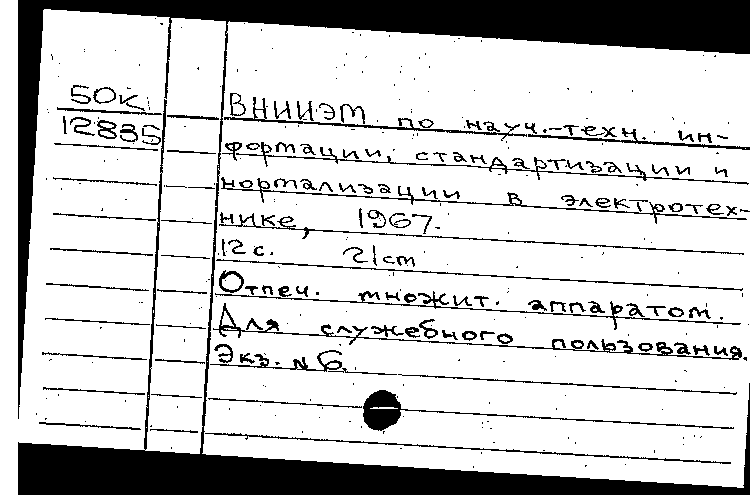 50K
12835
ВНИИЭМ по науч.-техн. ин-
формации, стандартизации и
нортализации в электротех-
нике, 1967.
12 с. 21 cm
Отпеч. множит. аппаратом.
Для служебного пользования.
Экз. N 6.